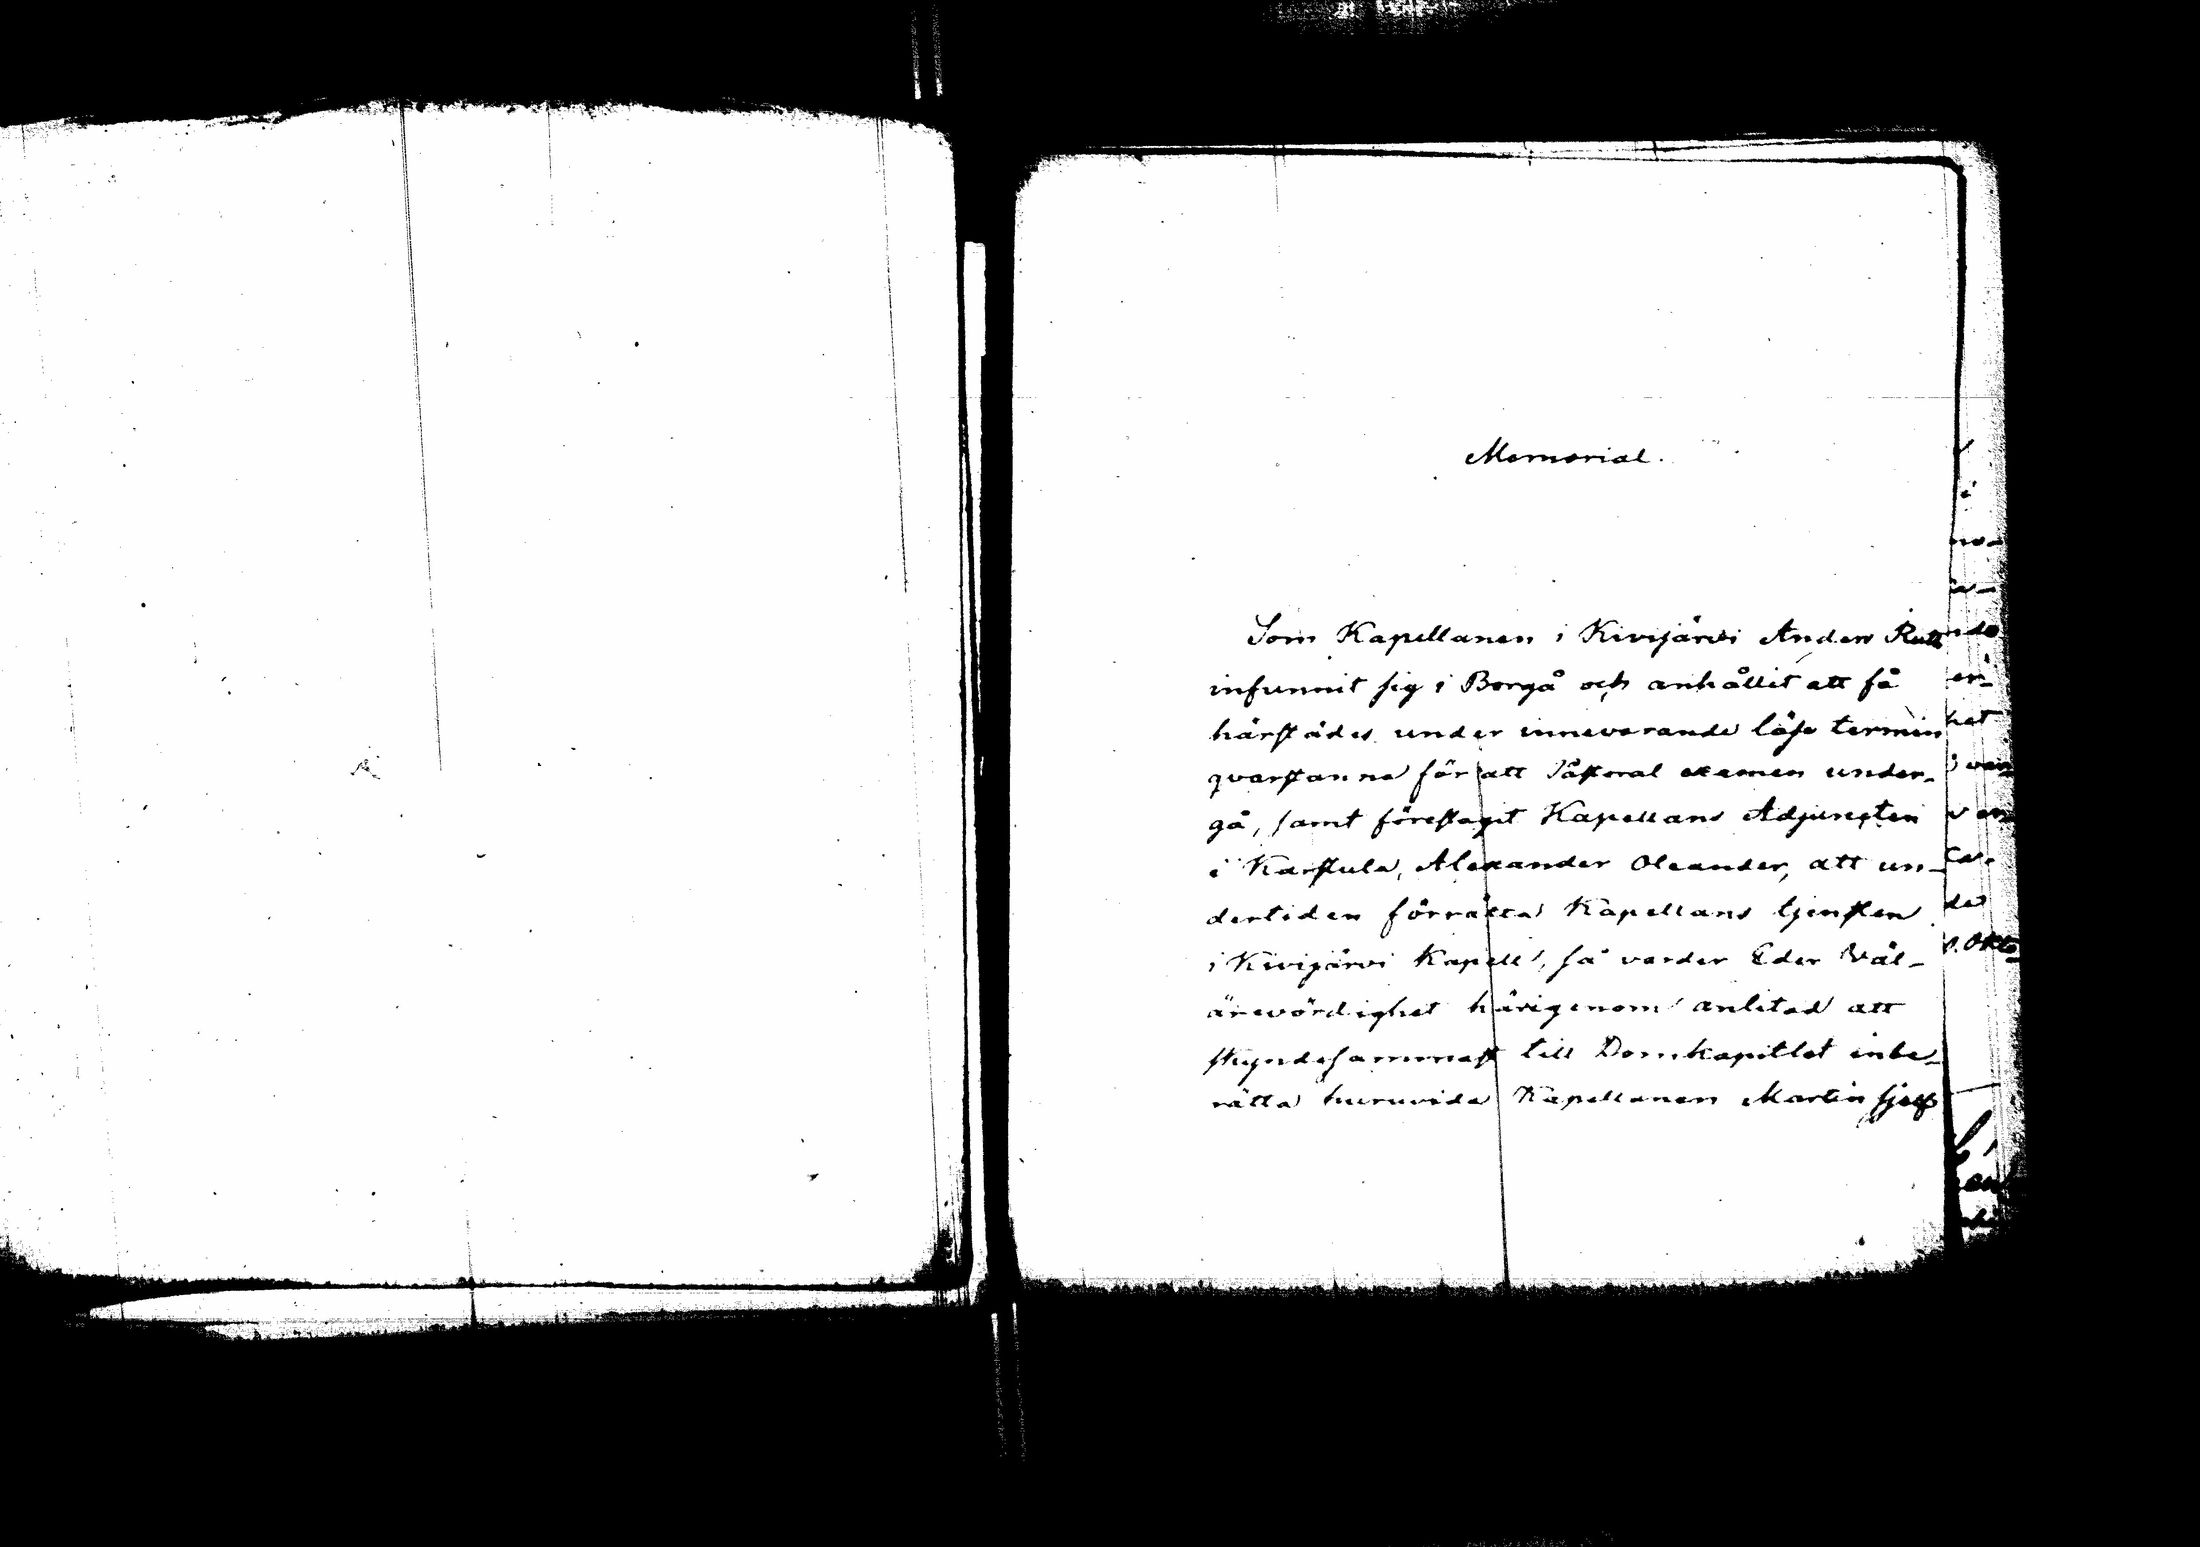 Memorial.
Som Kapellanen i Kivijärvi Anders Rutt
infunnit sig i Borgå och anhållit att få
härstädes under innevarande läse termin
qvarstanna för att Pastoral examen under-
gå, samt föreslagit Kapellans Adjuncten
i Karstula, Alexander Oleander, att un-
dertiden förrätta Kapellans tjensten
i Kivijärvi Kapell, så varder Eder Väl-
ärevördighet härigenom anlitad att
skyndesammast till Domkapitlet inbe-
rätta huruvida Kapellanen Martin sjelf